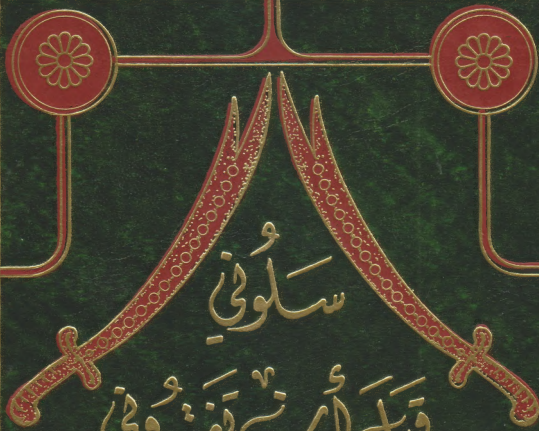 سَلُونِي
قَبْلَ أَنْ تَفْقِدُونِي